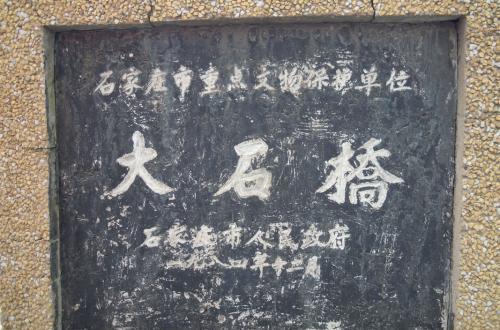 石家庄市重点文物保护单位
大石桥
石家庄市人民政府
一九八四年十二月